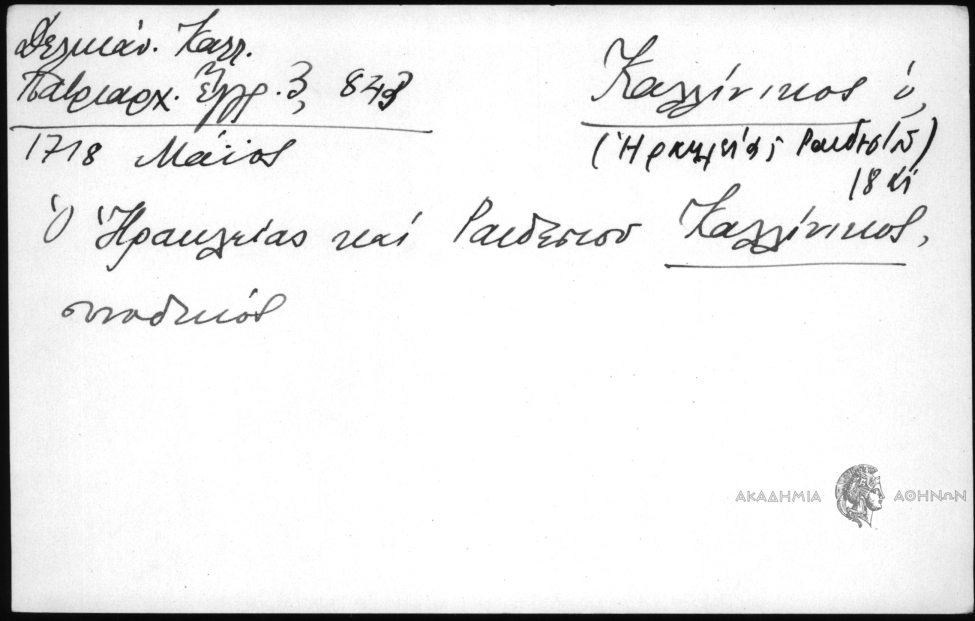 Δελικάν. Καλλ.
Πατριαρχ. Ἔγγρ. 3, 843
1718 Μάϊος
Καλλίνικος ὁ,
(Ἡρακλείας Ραιδεστοῦ)
18 αἰ
Ὁ Ἡρακλείας καί Ραιδεστοῦ Καλλίνικος,
συνοδικός
ΑΚΑΔΗΜΙΑ ΑΘΗΝΩΝ